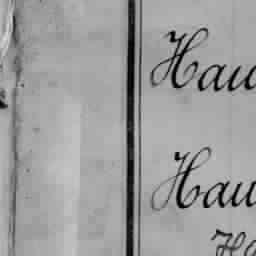 Hau
Hau
Ha